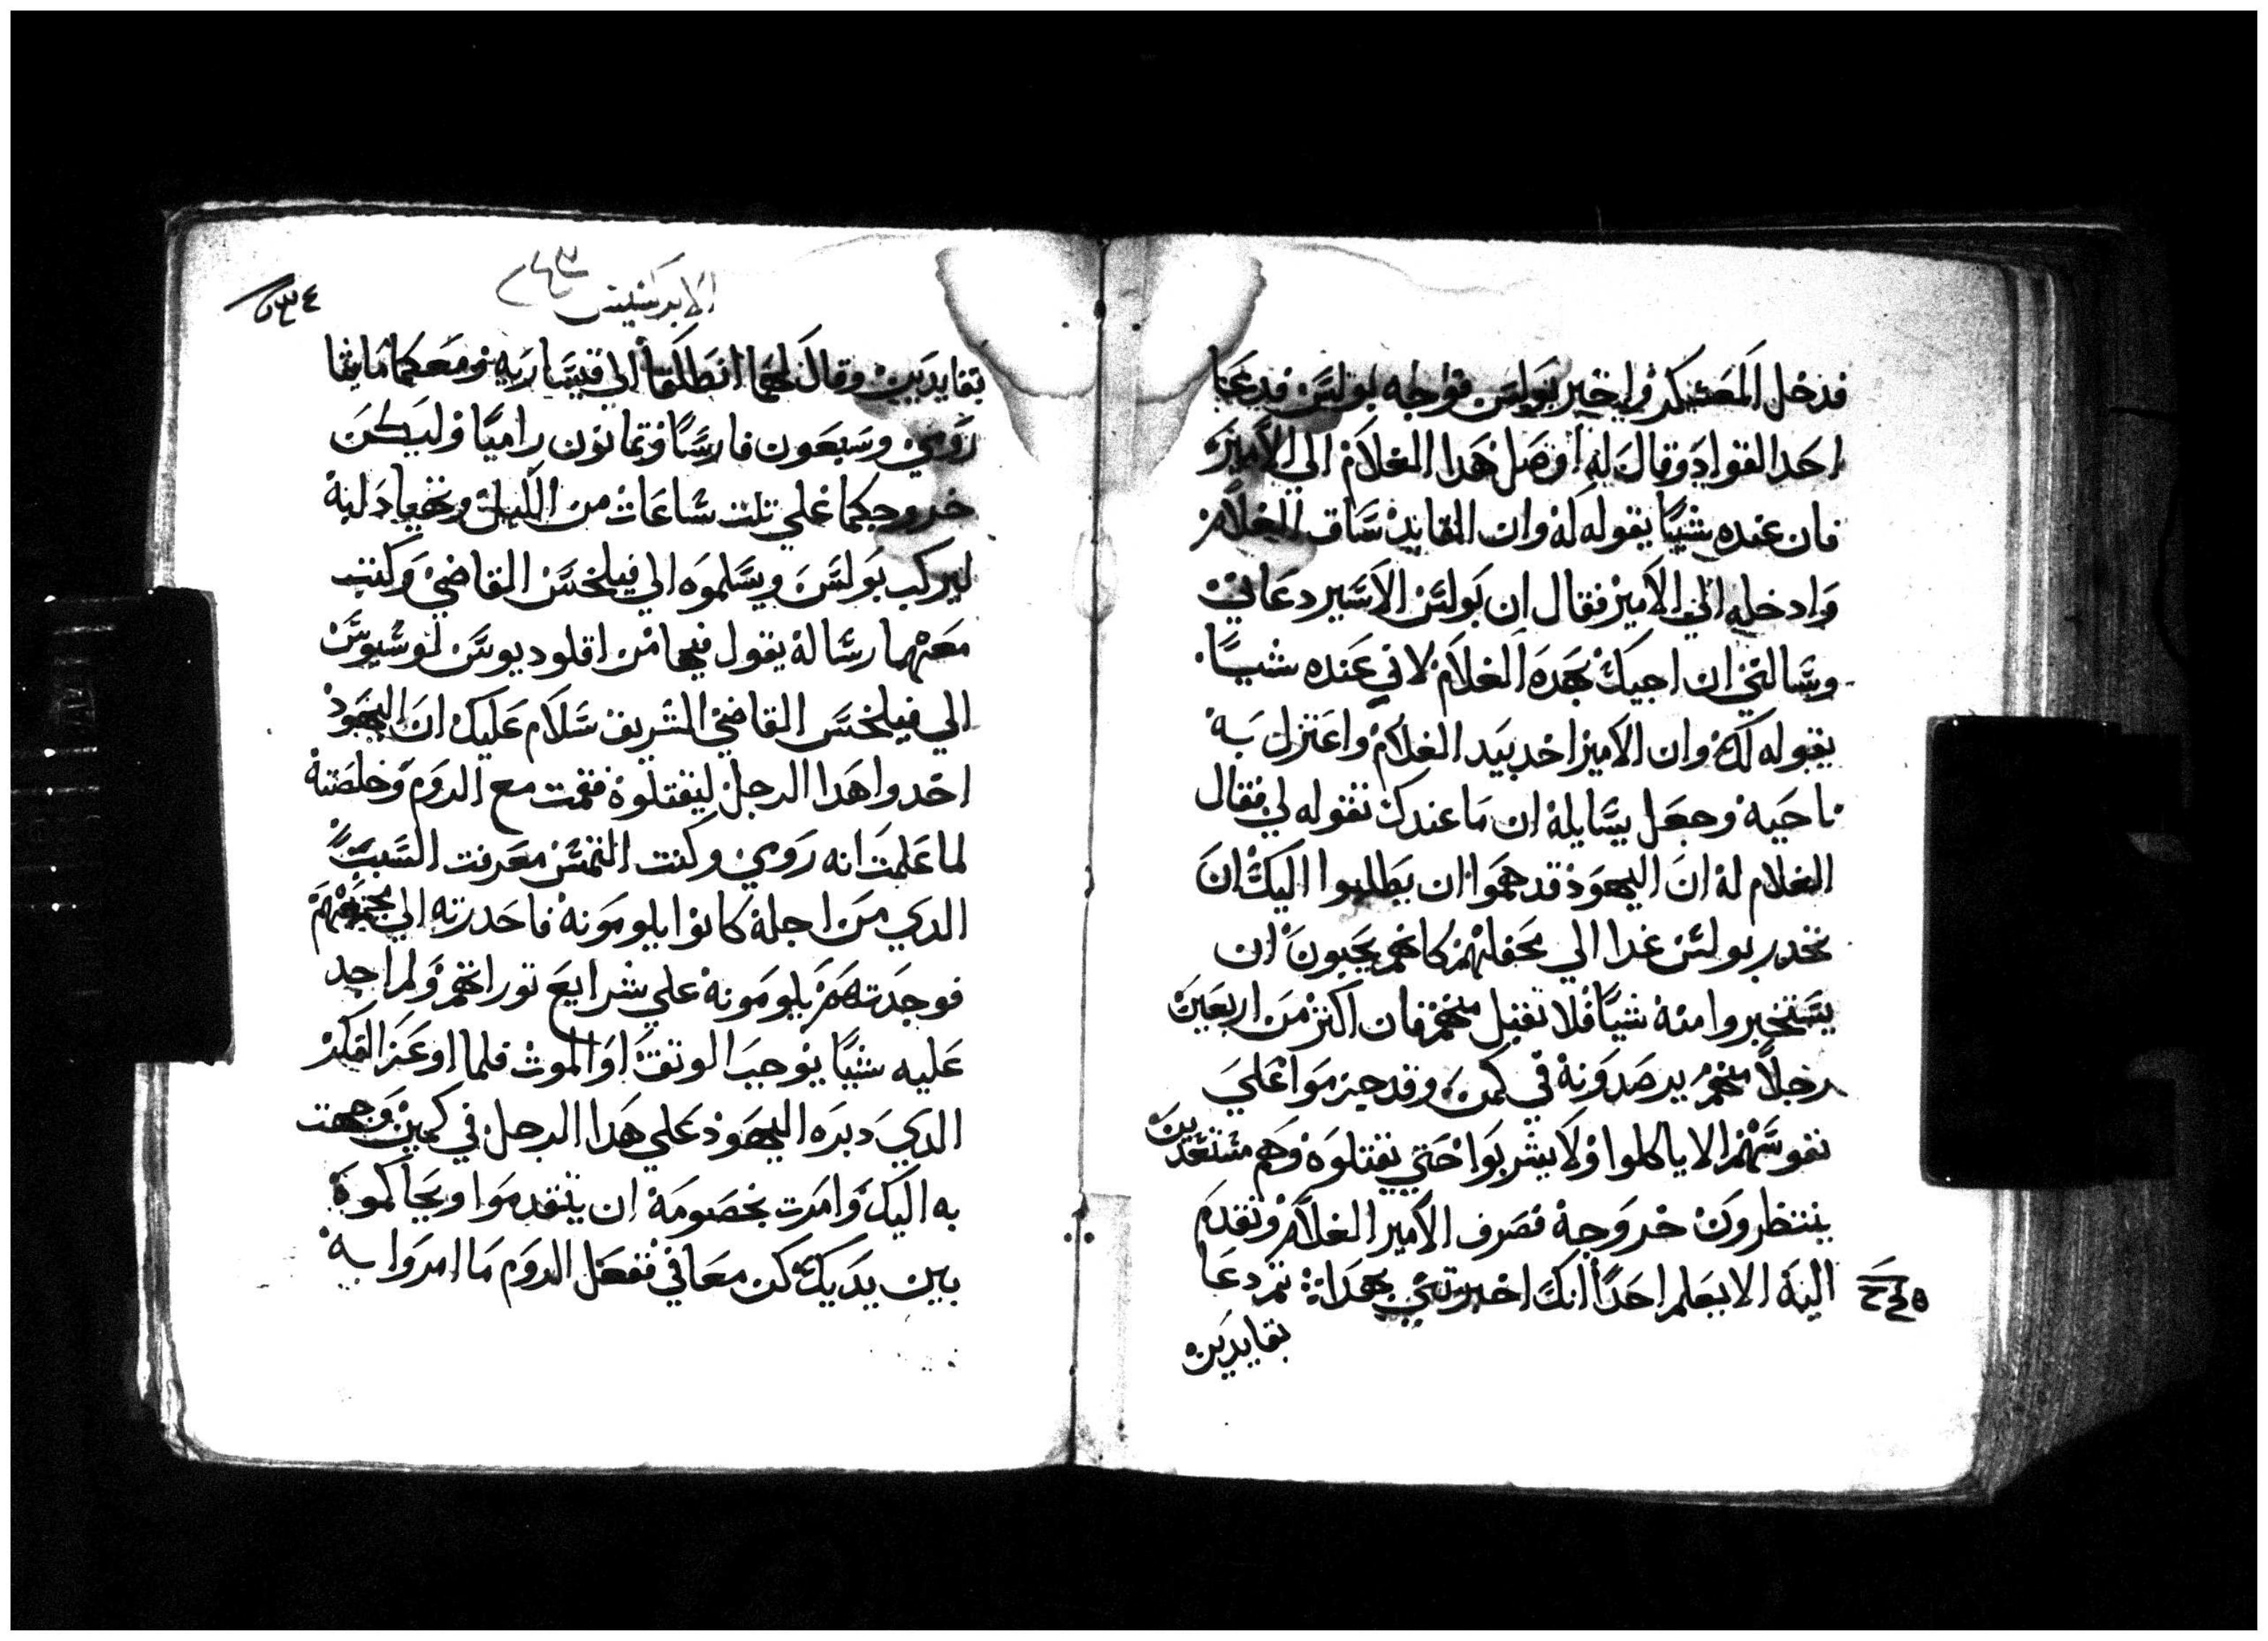 فدخل المعسكر واخبر بولس فوجه بولس فدعا
احد القواد وقال له اوصل هدا الغلام الي الامير
فان عنده شيًا يقوله له وان القايد ساق الغلام
وادخله الي الامير فقال ان بولس الاسير دعاني
وسالني ان اجيك بهده الغلام لاني عنده شيًا
يقوله لك وان الامير اخد بيد الغلام واعتزل به
ناحيه وجعل يسايله ان ما عندك تقوله لي فقال
الغلام له ان اليهود قد هموا ان يطلبوا اليك ان
تحدر بولس غدا الي محفلهم كانهم يحبون ان
يستخبروا منه شيًا فلا تقبل منهم فان اكتر من اربعين
رجلاً منهم يرصدونه في كمن وقد حرموا علي
نفوسهم الا ياكلوا ولا يشربوا حتي يقتلوه وهم مستعدين
ينتظرون خروجه فصرف الامير الغلام وتقدم
اليه الا يعلم احدًا انك اخبرتني بهدا ثم دعا
بقايدين
الابركسيس
بقايدين وقال لهما انطلقا الي قيساريه ومعكما مايتا
رومي وسبعون فارسًا وتمانون راميًا وليكن
خروجكما علي تلت ساعات من الليل وتهيا دابه
ليركب بولس ويسلموه الي فيلخس القاضي وكتب
معهما رساله يقول فيها من اقلوديوس لوسيوس
الي فيلخس القاضي الشريف سلام عليك ان اليهود
اخدوا هدا الرجل ليقتلوه فقمت مع الروم وخلصته
لما علمت انه رومي وكنت التمس معرفت السبب
الدي من اجله كانوا يلومونه فاحدرته الي مجمعهم
فوجدتهم يلومونه علي شرايع توراتهم ولم اجد
عليه شيًا يوجب الوتق او الموت فلما اوعز المكر
الدي دبره اليهود علي هدا الرجل في كمين وجهت
به اليك وامرت بخصومه ان يتقدموا ويحاكموه
بين يديك كن معافي ففعل الروم ما امروا به